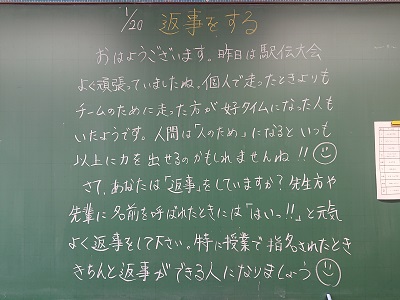 1/20 返事をする
おはようございます。昨日は駅伝大会
よく頑張っていましたね。個人で走ったときよりも
チームのために走った方が好タイムになった人も
いたようです。人間は「人のため」になるといつも
以上に力を出せるのかもしれませんね!!
さて、あなたは「返事」をしていますか?先生方や
先輩に名前を呼ばれたときには「はいっ!!」と元気
よく返事をして下さい。特に授業で指名されたとき
きちんと返事ができる人になりましょう